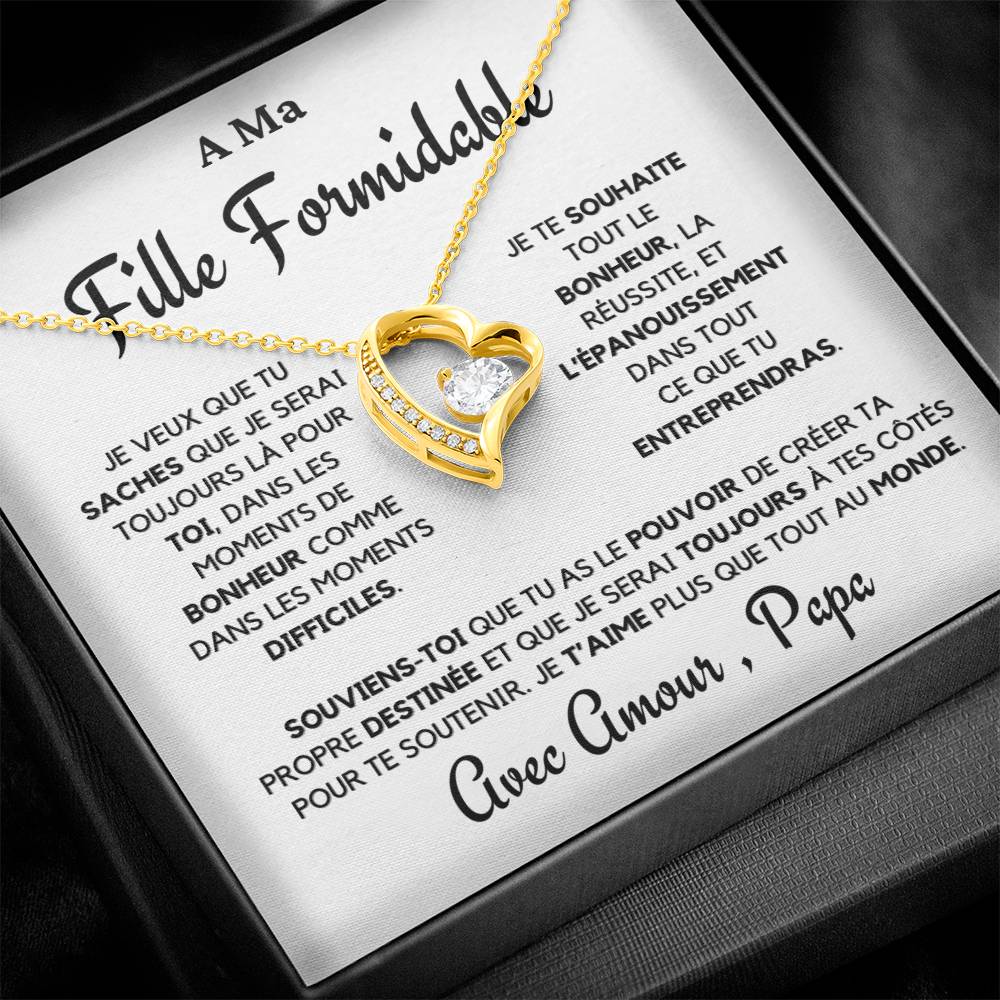 A Ma
Fille Formidable
JE VEUX QUE TU
SACHES QUE JE SERAI
TOUJOURS LÀ POUR
TOI, DANS LES
MOMENTS DE
BONHEUR COMME
DANS LES MOMENTS
DIFFICILES.
JE TE SOUHAITE
TOUT LE
BONHEUR, LA
RÉUSSITE, ET
L'ÉPANOUISSEMENT
DANS TOUT
CE QUE TU
ENTREPRENDRAS.
SOUVIENS-TOI QUE TU AS LE POUVOIR DE CRÉER TA
PROPRE DESTINÉE ET QUE JE SERAI TOUJOURS À TES CÔTÉS
POUR TE SOUTENIR. JE T'AIME PLUS QUE TOUT AU MONDE.
Avec Amour , Papa